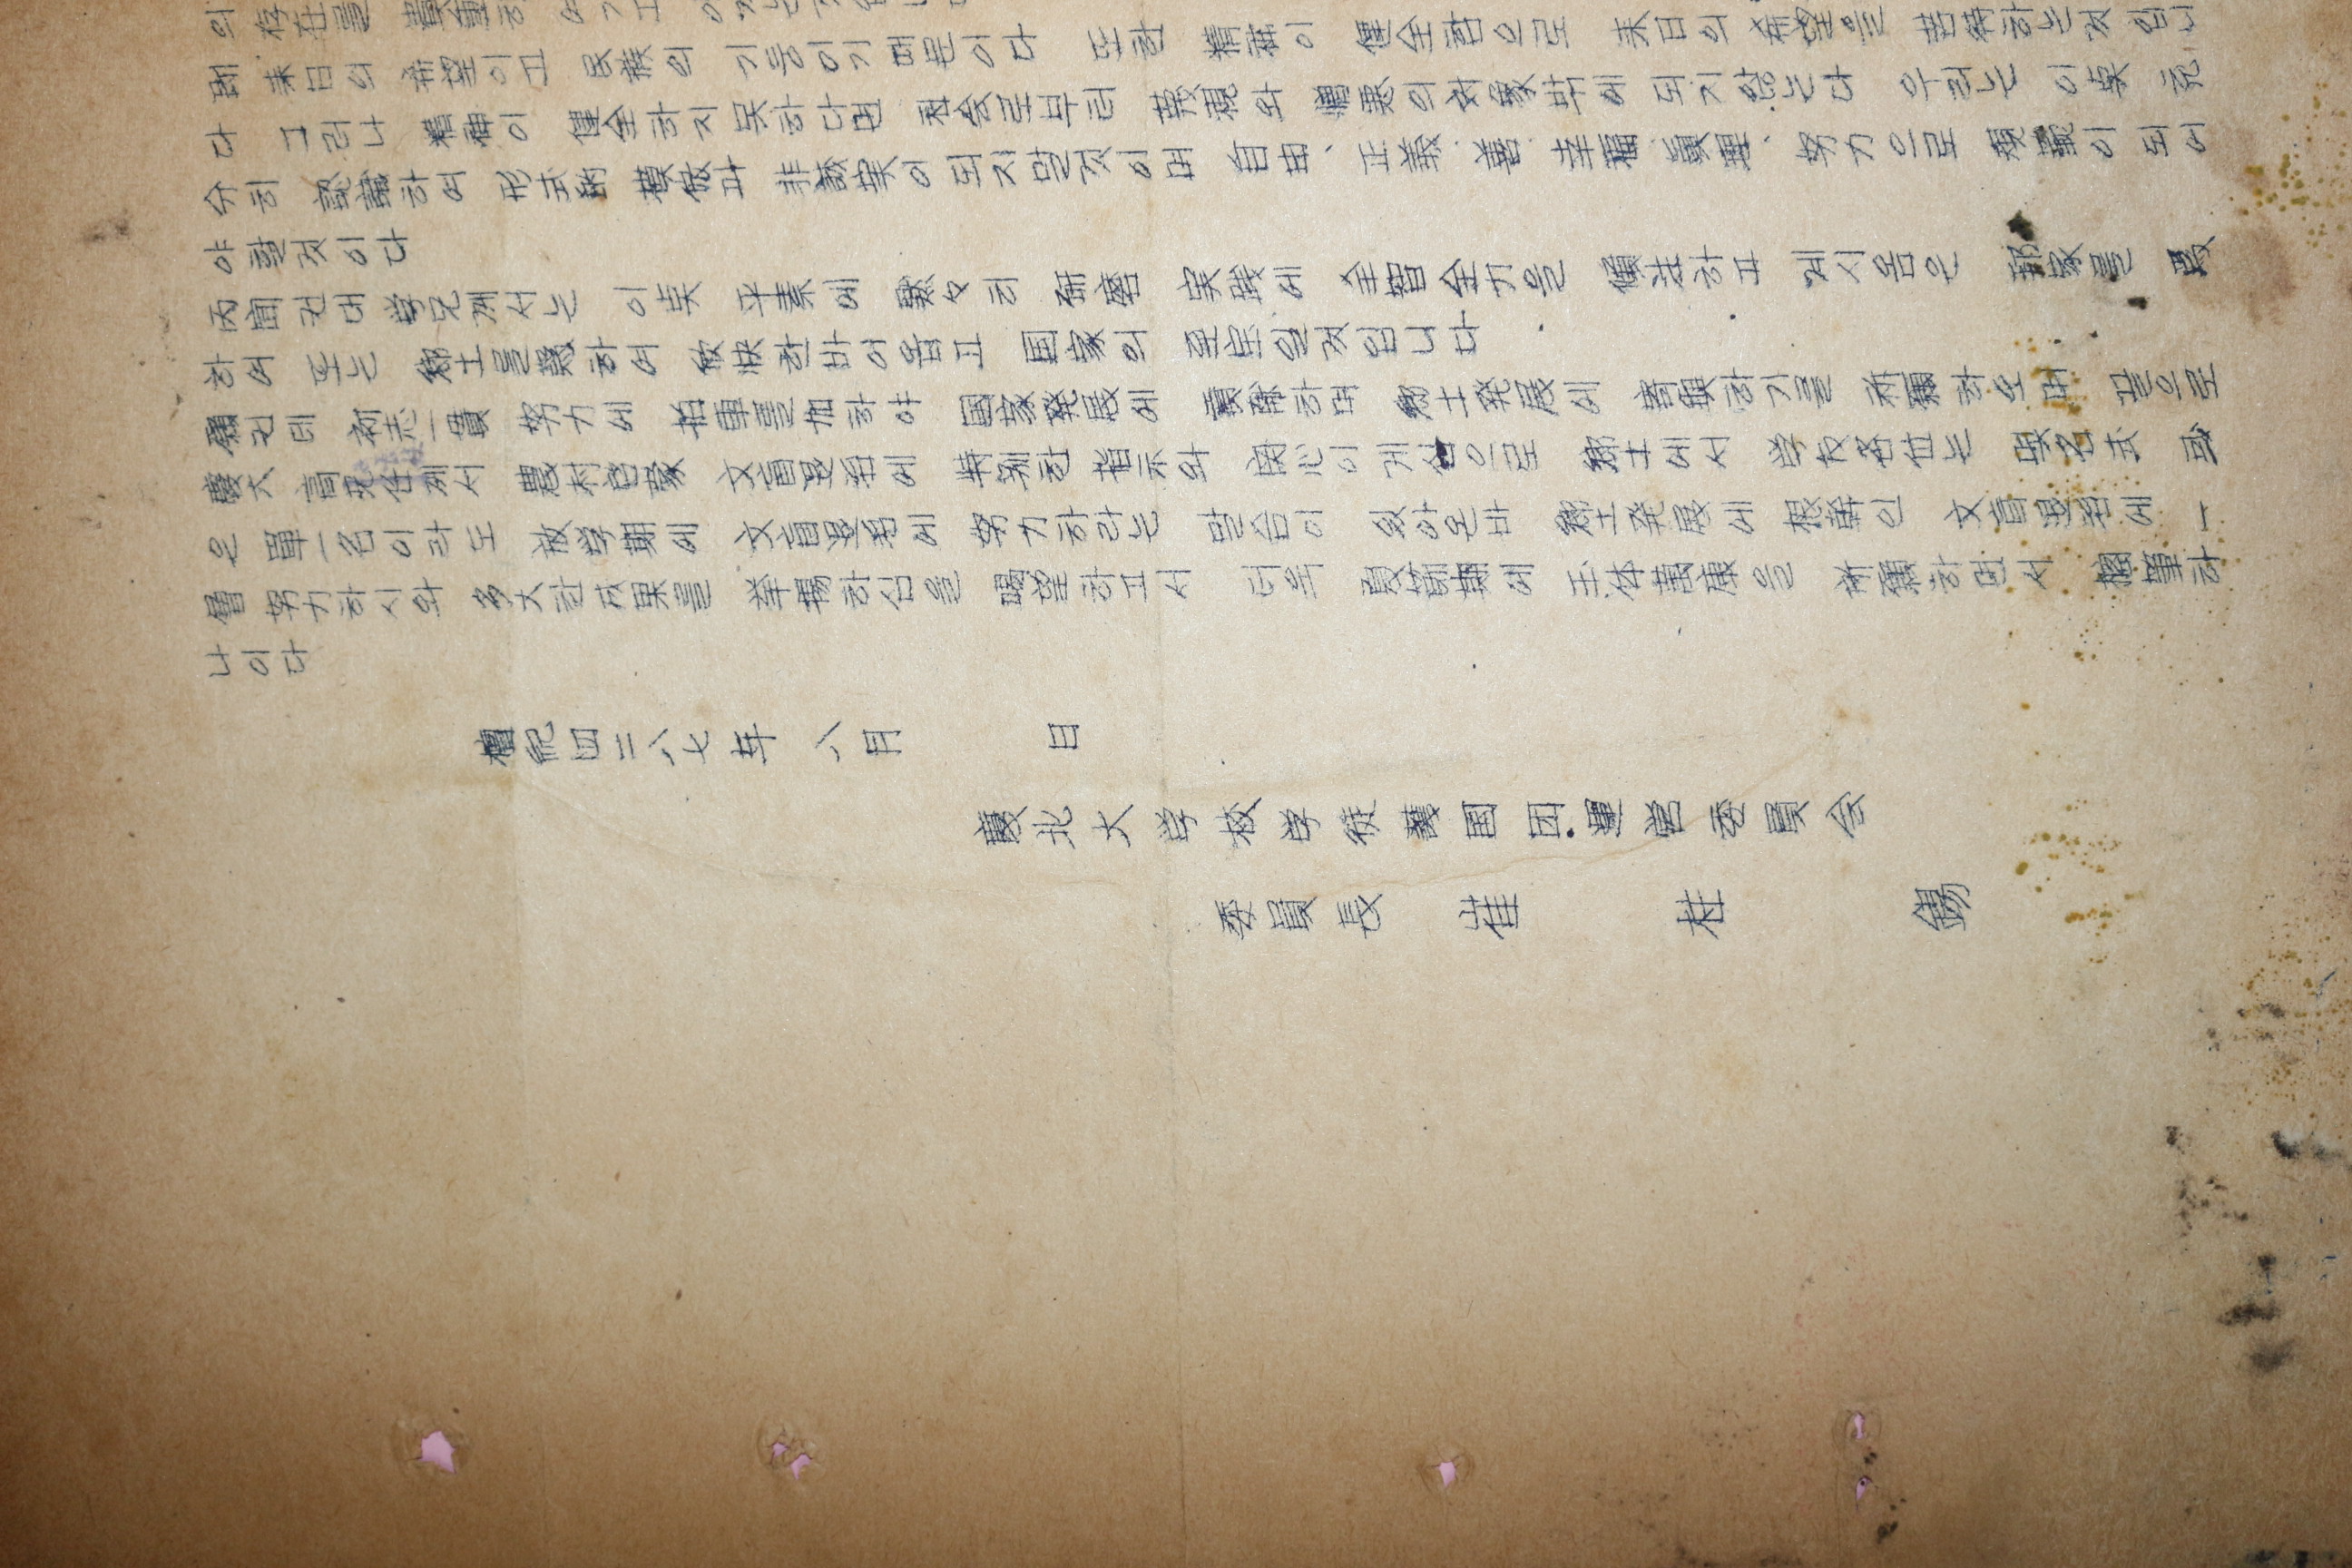 의 存在를 貴重히 여기고 아끼는것입니다
即 来日의 希望이고 民族의 기둥이기때문이다 또한 精神이 健全함으로 来日의 希望을 苦待하는것입니
다 그러나 精神이 健全하지못하다면 社会로부터 蔑視와 憎悪의対象밖에 되지않는다 우리는 이点 充
分히 認識하여 形式的 模倣과 非誠実이되지말것이며 自由、正義、善、幸福、眞理、努力으로 規範이되여
야할것이다
丙聞컨대 学兄께서는 이点 平素에 黙々히 研磨 実践에 全智全力을 傾注하고 계시옴은 邦家를 爲
하여 또는 鄕土를爲하여 欣快한바어옵고 国家의 至宝일것입니다
願컨데 初志一貫 努力에 拍車를加하야 国家発展에 貢献하며 鄕土発展에 寄與하기를 祈願하오며 끝으로
慶大 高兄任께서 農村啓蒙 文盲退治에 特別한 指示와 関心이게심으로 鄕土에서 学友各位는 與名式 或
은 單一名이라도 放学期에 文盲退治에 努力하라는 말슴이 있아온바 鄕土発展에 根幹인 文盲退治에 一
層 努力하시와 多大한成果를 挙揚하심을 喝望하고서 더욱 夏節期에 玉体萬康을 所願하면서 擱筆하
나이다
檀紀四二八七年 八月 日
慶北大学校学徒護国团運営委員会
委員長 崔 桂 錫